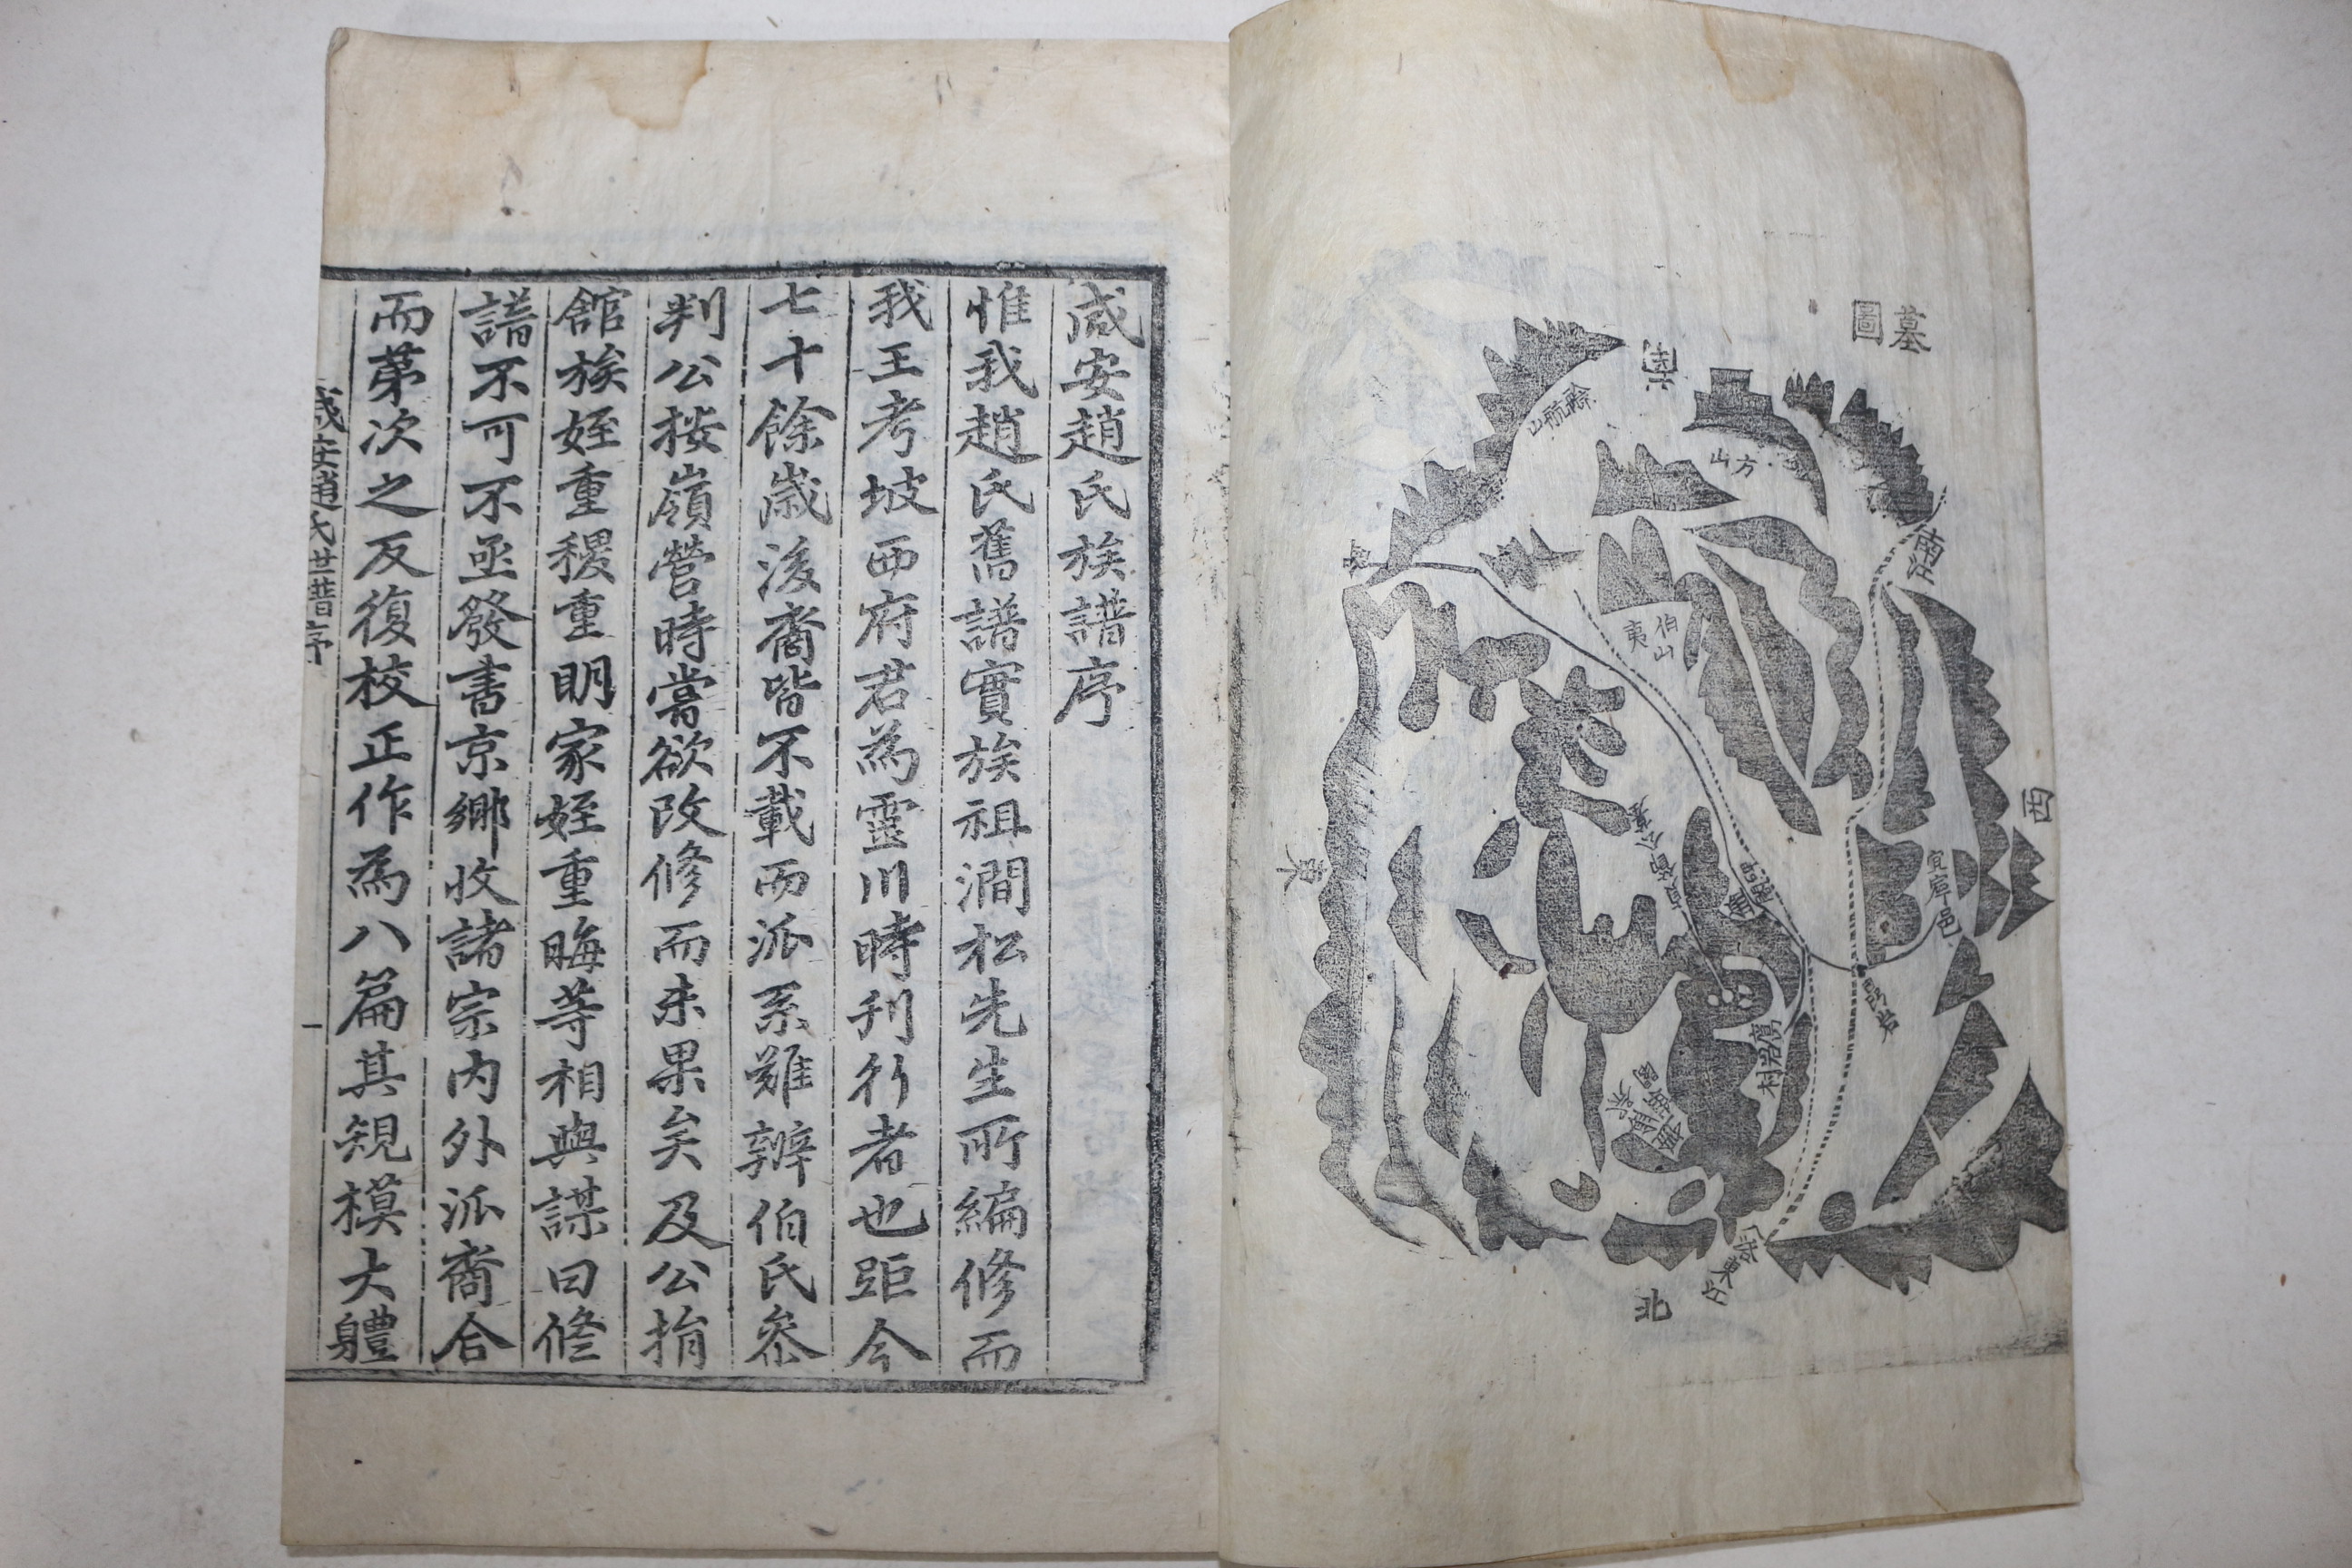 墓圖
南
西
東
北
餘航山
方山
伯夷山
南江
宜寧邑
窩岩村
洛東江
咸安趙氏族譜序
惟我趙氏舊譜實族祖澗松先生所編修而
我王考坡西府君為靈川時刊行者也距今
七十餘歲後裔皆不載而派系難辨伯氏參
判公按嶺營時嘗欲改修而未果矣及公捐
館族姪重稷重明家姪重晦等相與謀曰修
譜不可不亟發書京鄉收諸宗內外派裔合
而第次之反復校正作為八篇其規模大軆
咸安趙氏世譜序
一